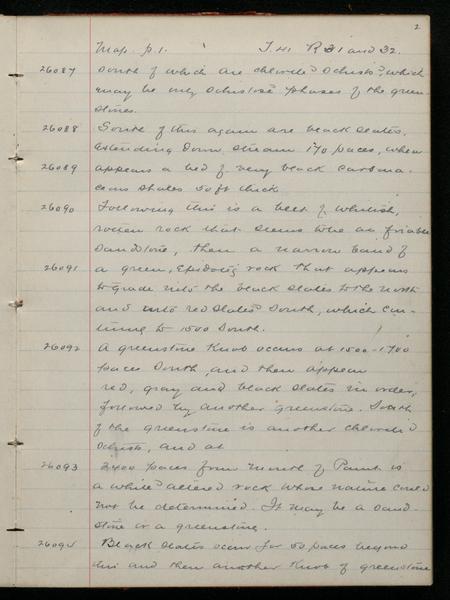 2
Map p. 1. T. 41 R 31 and 32.
26087 South of which are chlorite? Schists?, which
may be only Schistose phases of the green-
stones.
26088 South of this again are black slates,
extending down stream 170 paces, when
26089 appears a bed of very black carbona-
ceous shales 50 ft thick
26090 Following this is a belt of whitish,
rotten rock that seems like an friable
sandstone, then a narrow band of
26091 a green, Epidotic rock that appears
to grade into the black slates to the north
and into red slates South, which con-
tinue to 1500 South.
26092 A greenstone Knob occurs at 1500-1700
paces South, and then appear
red, gray and black slates in order,
followed by another greenstone. South
of the greenstone is another chlorite?
Schist, and at
26093 2400 paces from mouth of Paint is
a white? altered rock whose nature could
not be determined. It may be a sand-
stone or a greenstone.
26094 Black slates occur for 50 paces beyond
this and then another Knob of greenstone